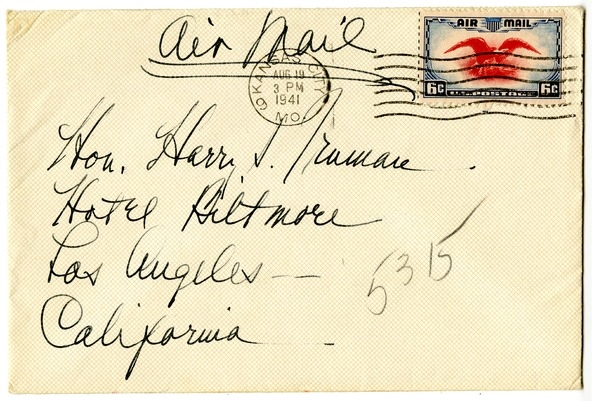 Air Mail
AIR MAIL
6¢ U.S. POSTAGE 6¢
KANSAS CITY
AUG 19
3 PM
1941
MO.
9
Hon. Harry S. Truman.
Hotel Biltmore
Los Angeles —
California
5315